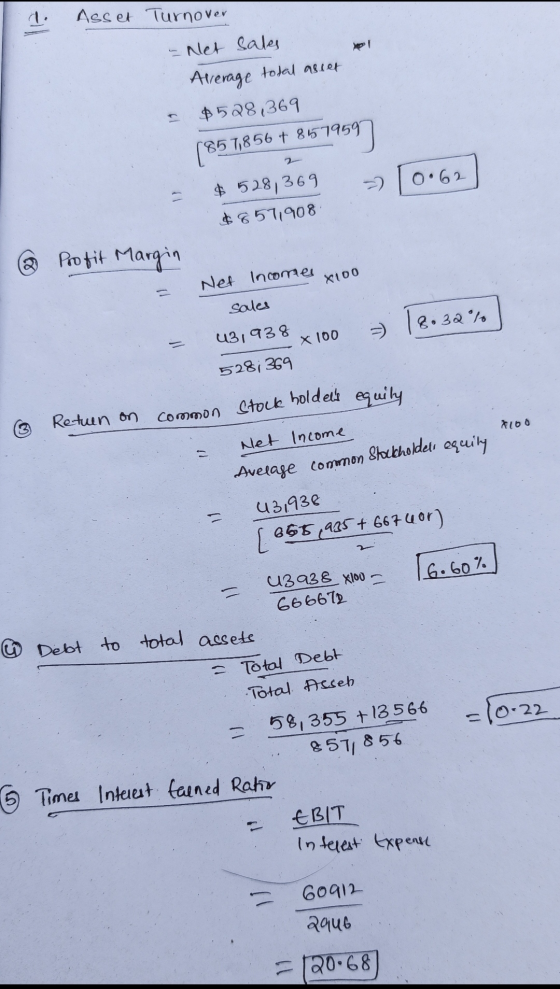 1. Asset Turnover
= Net Sales
Average total asset
= $528,369
[857,856 + 857959]
2
= $ 528,369 => 0.62
$857,908
② Profit Margin
= Net Incomes x100
Sales
= 43,938 x 100 => 8.32%
528,369
③ Return on common Stock holders equity
= Net Income x100
Average common Stockholders equity
= 43,938
2
= 43938 x100 = 6.60%
666672
④ Debt to total assets
= Total Debt
Total Assets
= 58,355 + 13566 = 0.22
857,856
⑤ Times Interest Earned Ratio
= EBIT
Interest Expense
= 60912
2946
= 20.68